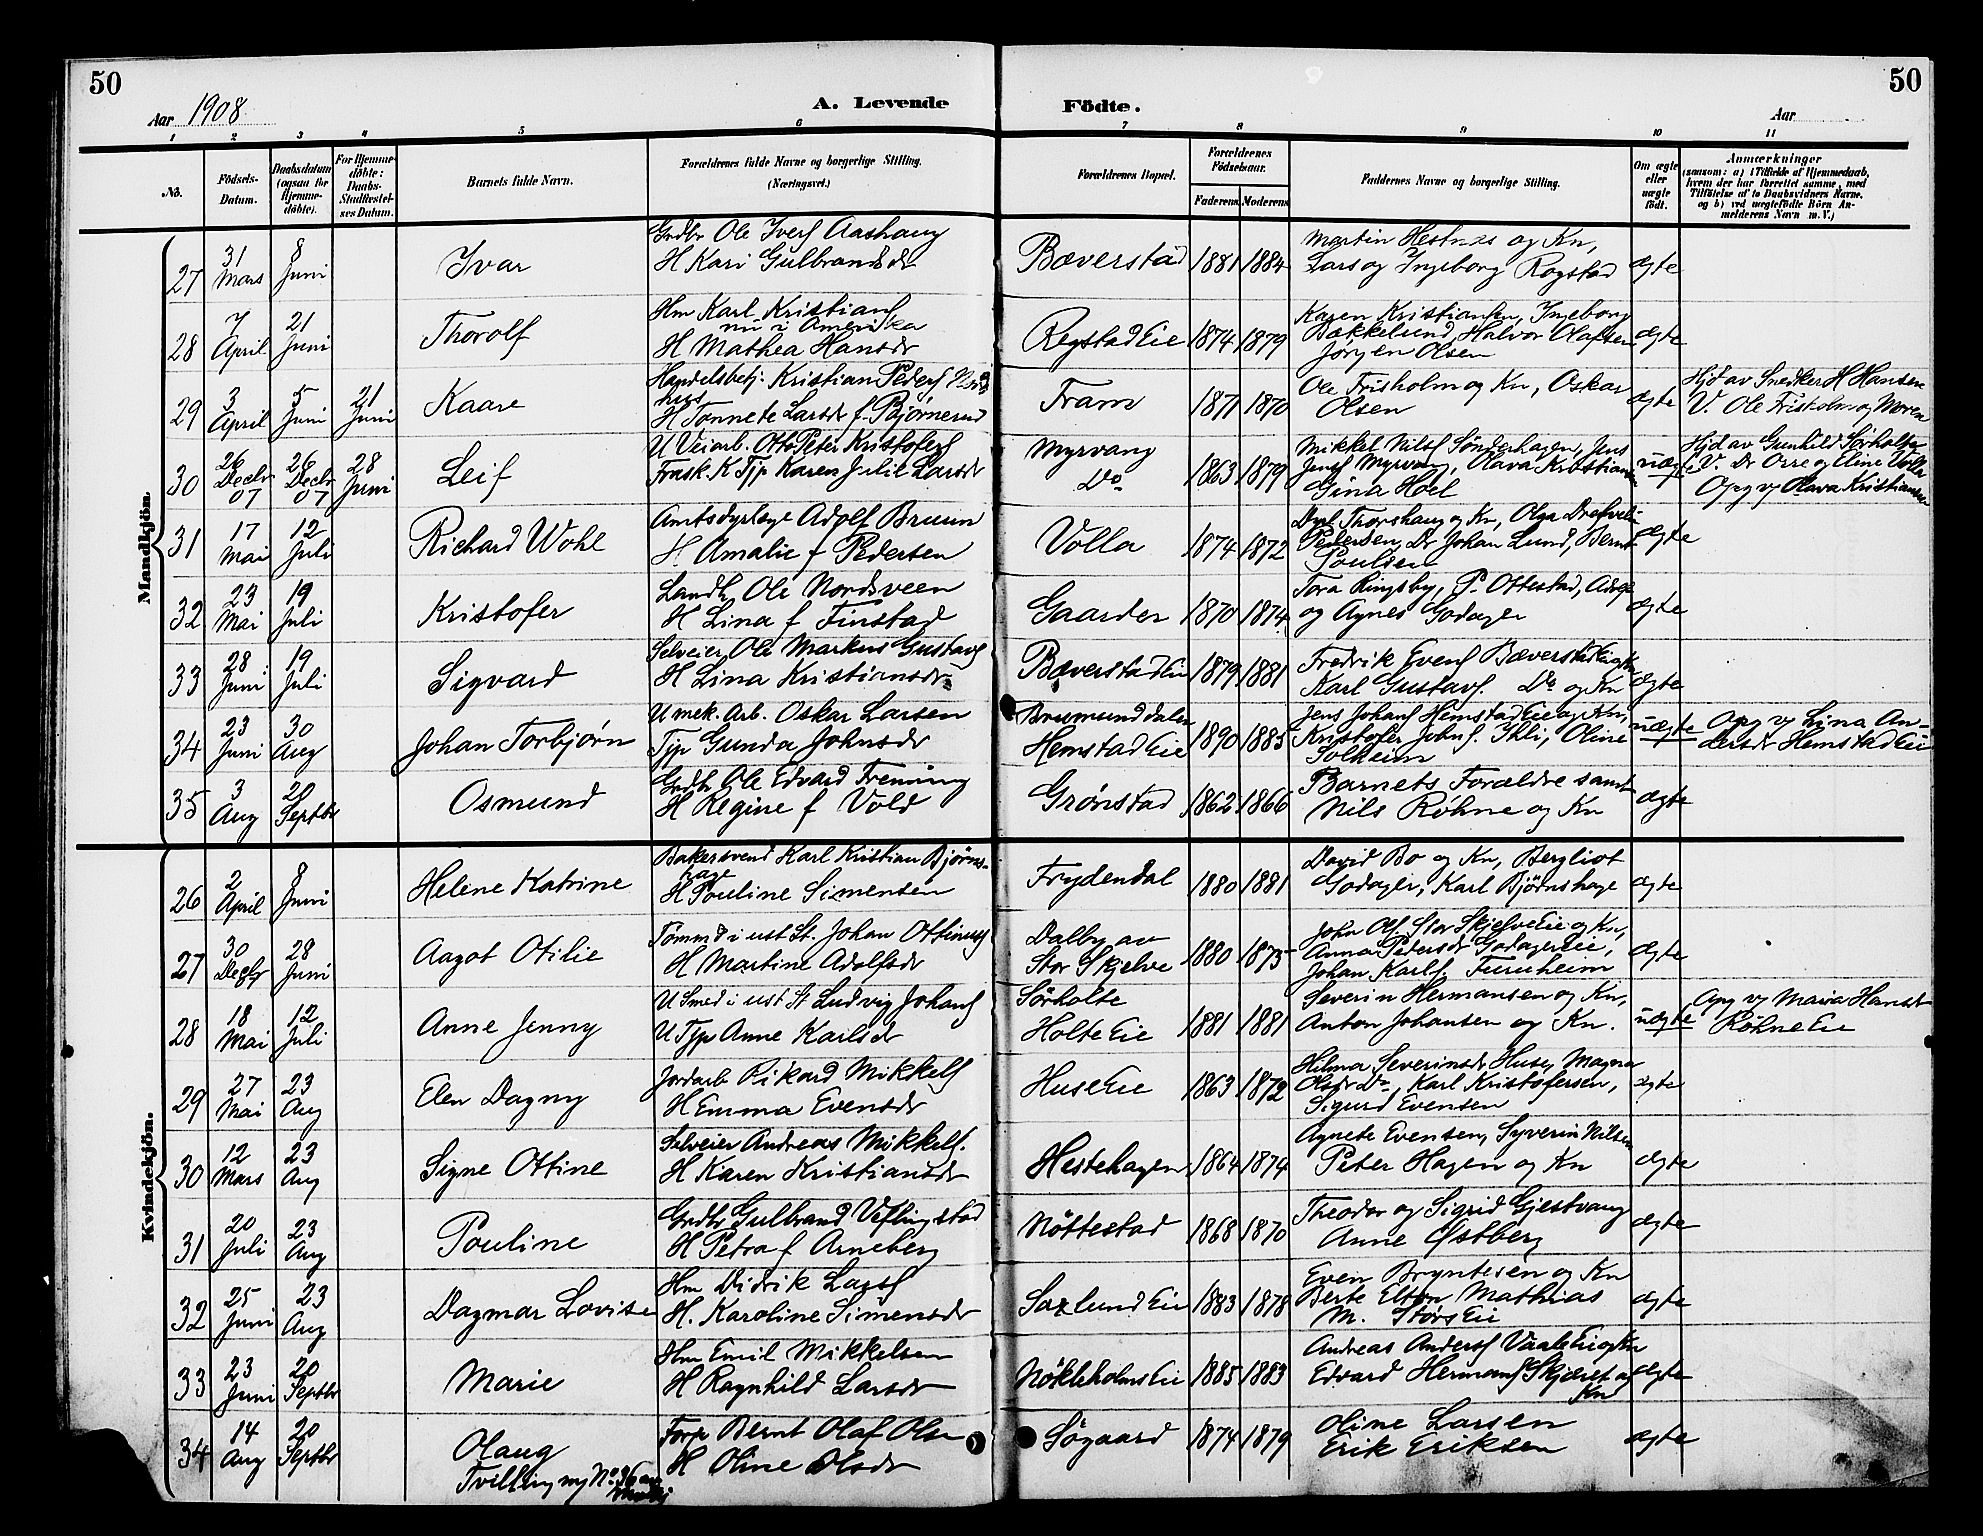 50
50
Aar 1908.
A. Levende
Födte.
Aar
1 2 3 4 5 6 7 8 9 10 11
No.
Födsels-Datum.
Daabsdatum (ogsaa for Hjemme-döbte).
For Hjemme-döbte: Daabs-Stadfæstel-ses Datum.
Barnets fulde Navn.
Forældrenes fulde Navne og borgerlige Stilling.
(Næringsvei.)
Forældrenes Bopæl.
Forældrenes Födselsaar.
Faderens. Moderens.
Faddernes Navne og borgerlige Stilling.
Om ægte eller uægte födt.
Anmærkninger
(saasom: a) i Tilfælde af Hjemmedaab, hvem der har forrettet samme, med Tilföielse af to Daabsvidners Navne, og b) ved uægtefödte Börn Anmelderens Navn m. V.)
Mandkjön.
27 31 Mars 8 Juni Ivar
Grdbr Ole Iversf Aashaug
H Kari Gulbrandsdr
Bæverstad 1881 1884
Martin Hestnes og Kn,
Lars og Ingeborg Rogstad
ægte
28 7 April 21 Juni Thorolf
Hm Karl Kristiansf
nu i Amerika
H Mathea Hansdr
Rogstad Eie 1874 1879
Karen Kristiansen, Ingeborg
Bækkelund, Halvor Olafsen
Jørgen Olsen
ægte
29 3 April 5 Juni 21 Juni Kaare
Handelsbetj. Kristian Pedersf
H Tonnete Larsdr f. Bjørnerud
Fram 1871 1870
Ole Frisholm og Kn, Oskar
Olsen
ægte
Hjd av Snedker H Hansen
V. Ole Frisholm og Moren
30 26 Decbr 07 26 Decbr 07 28 Juni Leif
U Veiarb. Otto Peter Kristofersf
Frask. K Tjp Karen Julie Larsdr
Myrvang
Do
1863 1879
Mikkel Nilsf Sønderhagen, Jens
Jensf Myrvang, Olava Kristiansen
Gina Hoel
uægte
Hjd av Gunhild Sørholte
V. Dr Orre og Eline Volla
Opg v/ Olava Kristiansen
31 17 Mai 12 Juli Richard Wohl
Amtsdyrlæge Adolf Bruun
H. Amalie f Pedersen
Volla 1874 1872
Dyrl Thorshaug og Kn, Olga
Pedersen, Dr Johan Lund, Bernt
Poulsen
ægte
32 23 Mai 19 Juli Kristofer
Landh. Ole Nordsveen
H Lina f Finstad
Gaarder 1870 1874
Tora Ringsby, P. Ottestad, Adolf
og Agnes Godager
ægte
33 28 Juni 19 Juli Sigvard
Selveier Ole Markus Gustavsf
H Lina Kristiansdr
Bæverstad Eie 1879 1881
Fredrik Evensf Bæverstad Eie og Kn
Karl Gustavsf. Do og Kn
ægte
34 23 Juni 30 Aug Johan Torbjørn
U mek. Arb. Oskar Larsen
Tjp Gunda Johnsdr
Brumunddalen
Hemstad Eie
1890 1885
Jens Johansf Hemstad Eie og Kn,
Kristofer Johnsf. Ihli, Oline
Solheim
uægte
Opg v/ Lina An-
dersdr Hemstad Eie
35 3 Aug 20 Septbr Osmund
Grdbr Ole Edvard Frenning
H Regine f Vold
Grønstad 1862 1866
Barnets Forældre samt
Nils Røhne og Kn
ægte
Kvindekjön.
26 2 April 8 Juni Helene Katrine
Bakersvend Karl Kristian Bjørns-
hage
H Pouline Simensen
Frydendal 1880 1881
David Bo og Kn, Bergliot
Godager, Karl Bjørnshage
ægte
27 30 Decbr 28 Juni Aagot Otilie
Tømmerm i ust St. Johan Ottinusf
H Martine Adolfsdr
Dalby av
Stor Skjelve
1880 1875
John Olsf Stor Skjelve Eie og Kn,
Anna Petersdr Godager Eie,
Johan Karlsf. Furuheim
ægte
28 18 Mai 12 Juli Anne Jenny
U Smed i ust St Ludvig Johansf
U Tjp Anne Karlsdr
Sörholte
Holte Eie
1881 1881
Severin Hermansen og Kn,
Anton Johansen og Kn.
uægte
Opg v/ Maria Hansdr
Röhne Eie
29 27 Mai 23 Aug Elen Dagny
Jordarb Rikard Mikkelsf
H Emma Evensdr
Huse Eie 1863 1872
Hilma Severinsdr Huse, Magna
Olsdr Do, Karl Kristofersen,
Sigurd Evensen
ægte
30 12 Mars 23 Aug Signe Ottine
Selveier Andreas Mikkelsf.
H Karen Kristiansdr
Hestehagen 1864 1874
Agnete Evensen, Syverin Nilsen
Peter Hagen og Kn
ægte
31 20 Juli 23 Aug Pouline
Grdbr Gulbrand Veflingstad
H Petra f Arneberg
Nöttestad 1868 1870
Theodor og Sigrid Gjestvang
Anne Østberg
ægte
32 25 Juni 23 Aug Dagmar Lovise
Hm Didrik Larsf
H. Karoline Simensdr
Saxlund Eie 1883 1878
Even Bryntesen og Kn
Berte Elton Mathias
M. Störs Eie
ægte
33 23 Juni 20 Septbr Marie
Hm Emil Mikkelsen
H Ragnhild Larsdr
Nökleholms Eie 1885 1883
Andreas Andersf Vaale Eie og Kn
Edvard Hermansf Skjæret og
Kn
ægte
34 14 Aug 20 Septbr Olaug
Tvilling m/ No 36
Forp Bernt Olaf Olsen
H Oline Olsdr
Søgaard 1874 1879
Oline Larsen
Erik Eriksen
ægte